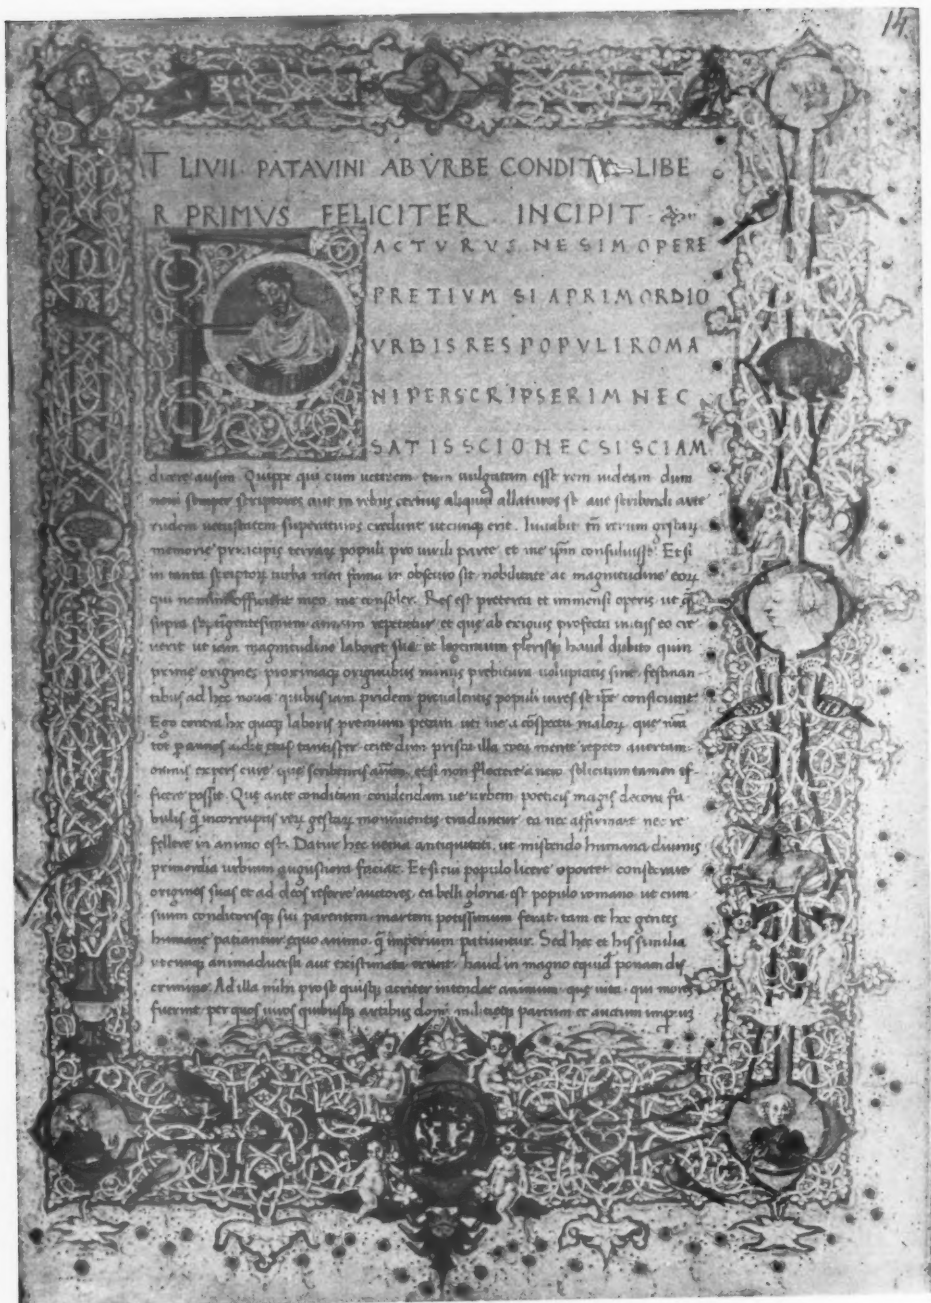 14
T LIVII PATAVINI AB VRBE CONDITA LIBE
R PRIMVS FELICITER INCIPIT
F ACTVRVS NE SIM OPERE
PRETIVM SI A PRIMORDIO
VRBIS RES POPVLI ROMA
NI PERSCRIPSERIM NEC
SATIS SCIO NEC SI SCIAM
dicere ausim. Quippe qui cum veterem tum vulgatam esse rem videam dum
novi semper scriptores aut in rebus certius aliquid allaturos se aut scribendi arte
rudem vetustatem superaturos credunt utcunq erit. Iuvabit tn̄ rerum gestaꝝ
memorie principis terraꝝ populi pro virili parte et me ip̄m consuluisse. Et si
in tanta scriptoꝝ turba mea fama in obscuro sit nobilitate ac magnitudine eoꝝ
qui nomini officient meo me consoler. Res est preterea et immensi operis ut q̄
supra septigentesimum annum repetatur et que ab exiguis profecta initiis eo cre
verit ut iam magnitudine laboret sua et legentium plerisq haud dubito quin
prime origines proximaq originibus minus prebitura voluptatis sint festinan
tibus ad hec nova quibus iam pridem prevalentis populi vires se ip̄e conficiunt
Ego contra hoc quoq laboris premium petam uti me a cōspectu maloꝝ que nr̄a
tot p annos vidit etas tantisper certe dum prisca illa tota mente repeto avertam
omnis expers cure que scribentis aīm et si non flectere a vero solicitum tamen ef
ficere possit. Que ante conditam condendam ve urbem poeticis magis decora fa
bulis q̄ incorruptis reꝝ gestaꝝ monumentis traduntur ea nec affirmare nec re
fellere in animo est. Datur hec venia antiquitati ut miscendo humana divinis
primordia urbium augustiora faciat. Et si cui populo licere oportet consecrare
origines suas et ad deos referre auctores ea belli gloria est populo romano ut cum
suum conditorisq sui parentem martem potissimum ferat tam et hoc gentes
humane patiantur equo animo q̄ imperium patiuntur. Sed hec et his similia
utcunq animadversa aut existimata erunt haud in magno equid ponam dis
crimine. Ad illa mihi pro se quisq acriter intendat animum que vita qui mores
fuerint per quos viros quibusq artibus domi militieq partum et auctum